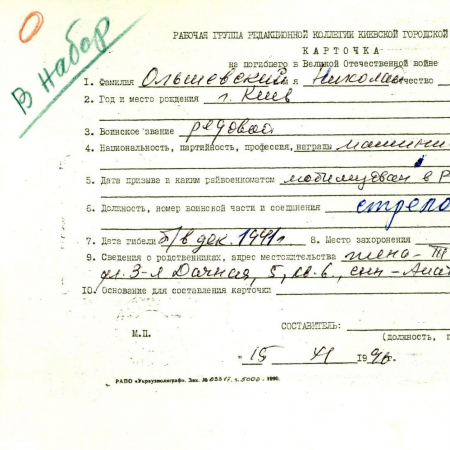 О
В набор
РАБОЧАЯ ГРУППА РЕДАКЦИОННОЙ КОЛЛЕГИИ КИЕВСКОЙ ГОРОДСКОЙ
КАРТОЧКА
на погибшего в Великой Отечественной войне
1. Фамилия Ольшевский Имя Николай отчество
2. Год и место рождения г. Киев
3. Воинское звание рядовой
4. Национальность, партийность, профессия, награды машини
5. Дата призыва и каким райвоенкоматом мобилизован в Р
6. Должность, номер воинской части и соединения стрело
7. Дата гибели б/в дек. 1941г. 8. Место захоронения
9. Сведения о родственниках, адрес местожительства жена - Ш
ул. 3-я Дачная, 5, кв. 6, сын - Анат
10. Основание для составления карточки
СОСТАВИТЕЛЬ:
М.П. (должность, п
"15 XI 1990г.
РАПО «Укрвузполиграф». Зак. № 0356 г. 5000. 1990.